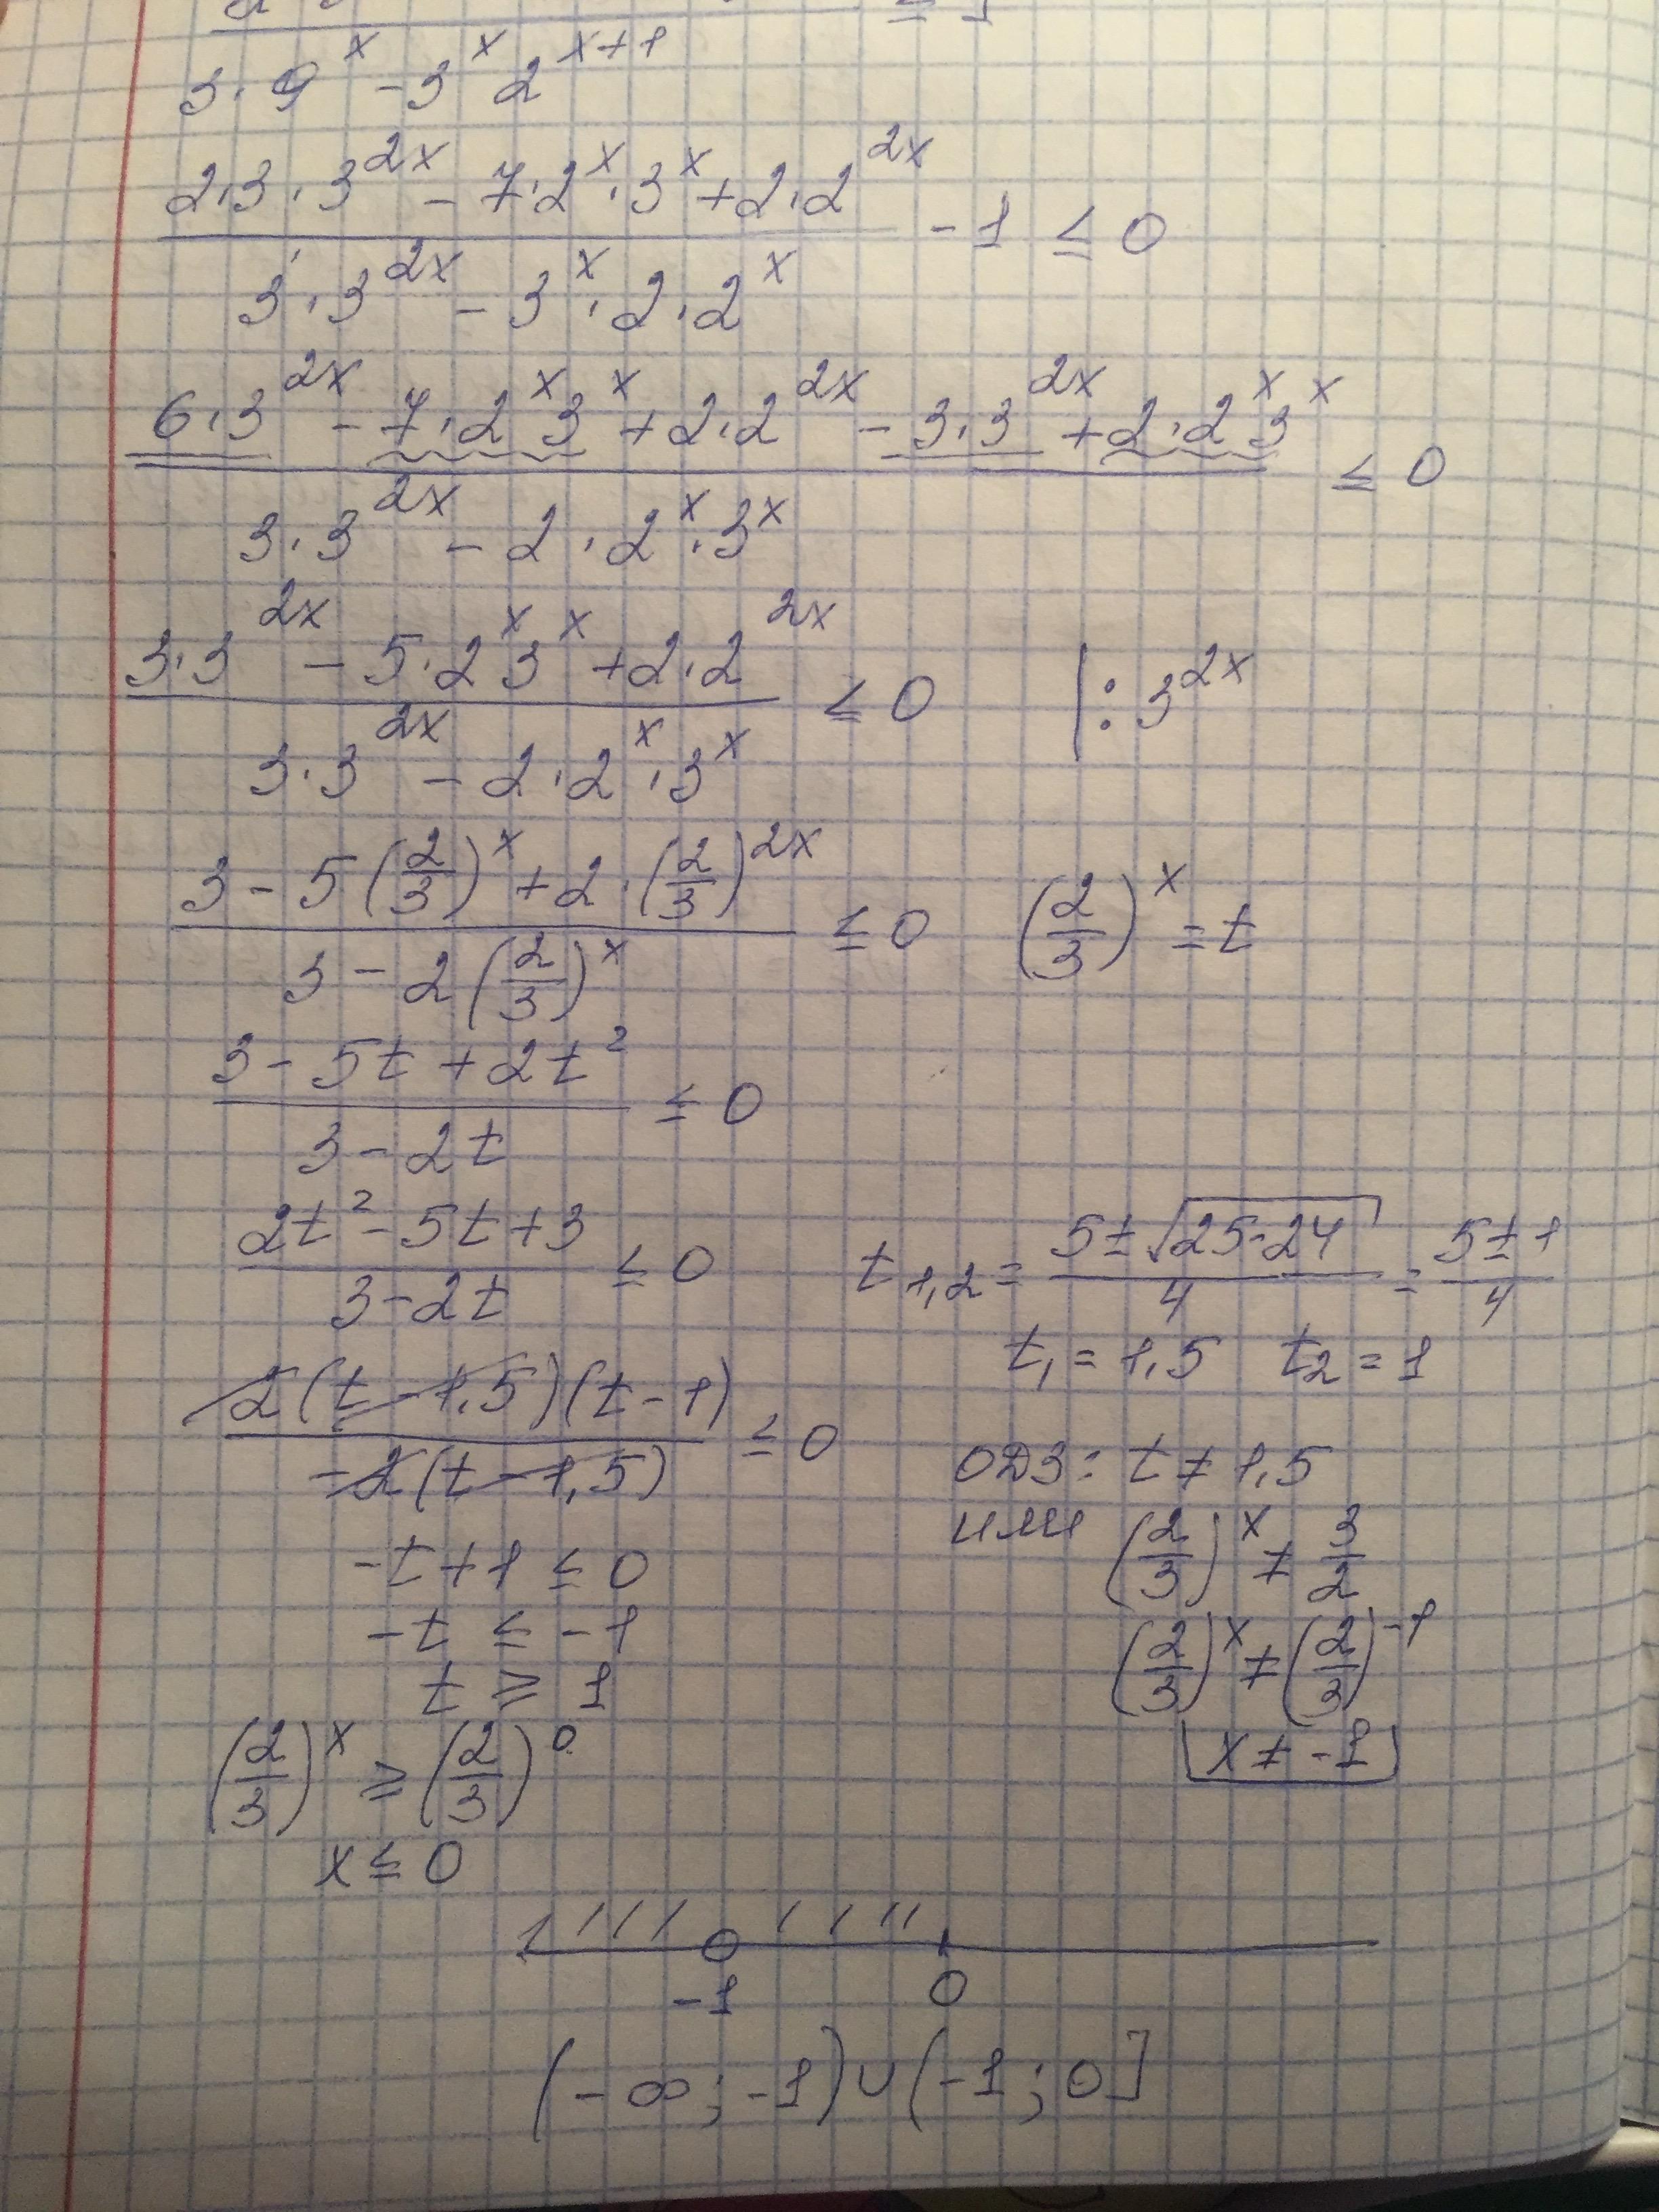 ≤ 1
3·9^x - 3^x 2^(x+1)
2·3·3^(2x) - 7·2^x·3^x + 2·2^(2x)
- 1 ≤ 0
3·3^(2x) - 3^x·2·2^x
6·3^(2x) - 7·2^x 3^x + 2·2^(2x) - 3·3^(2x) + 2·2^x 3^x
≤ 0
3·3^(2x) - 2·2^x·3^x
3·3^(2x) - 5·2^x 3^x + 2·2^(2x)
≤ 0 | : 3^(2x)
3·3^(2x) - 2·2^x·3^x
3 - 5(2/3)^x + 2·(2/3)^(2x)
≤ 0 (2/3)^x = t
3 - 2(2/3)^x
3 - 5t + 2t²
≤ 0
3 - 2t
2t² - 5t + 3
≤ 0
3 - 2t
t1,2 = (5±√(25-24))/4 = (5±1)/4
t1 = 1,5 t2 = 1
2(t - 1,5)(t - 1)
≤ 0
-2(t - 1,5)
ОДЗ: t ≠ 1,5
или (2/3)^x ≠ 3/2
(2/3)^x ≠ (2/3)^(-1)
x ≠ -1
-t + 1 ≤ 0
-t ≤ -1
t ≥ 1
(2/3)^x ≥ (2/3)^0
x ≤ 0
-1 0
(-∞; -1)∪(-1; 0]